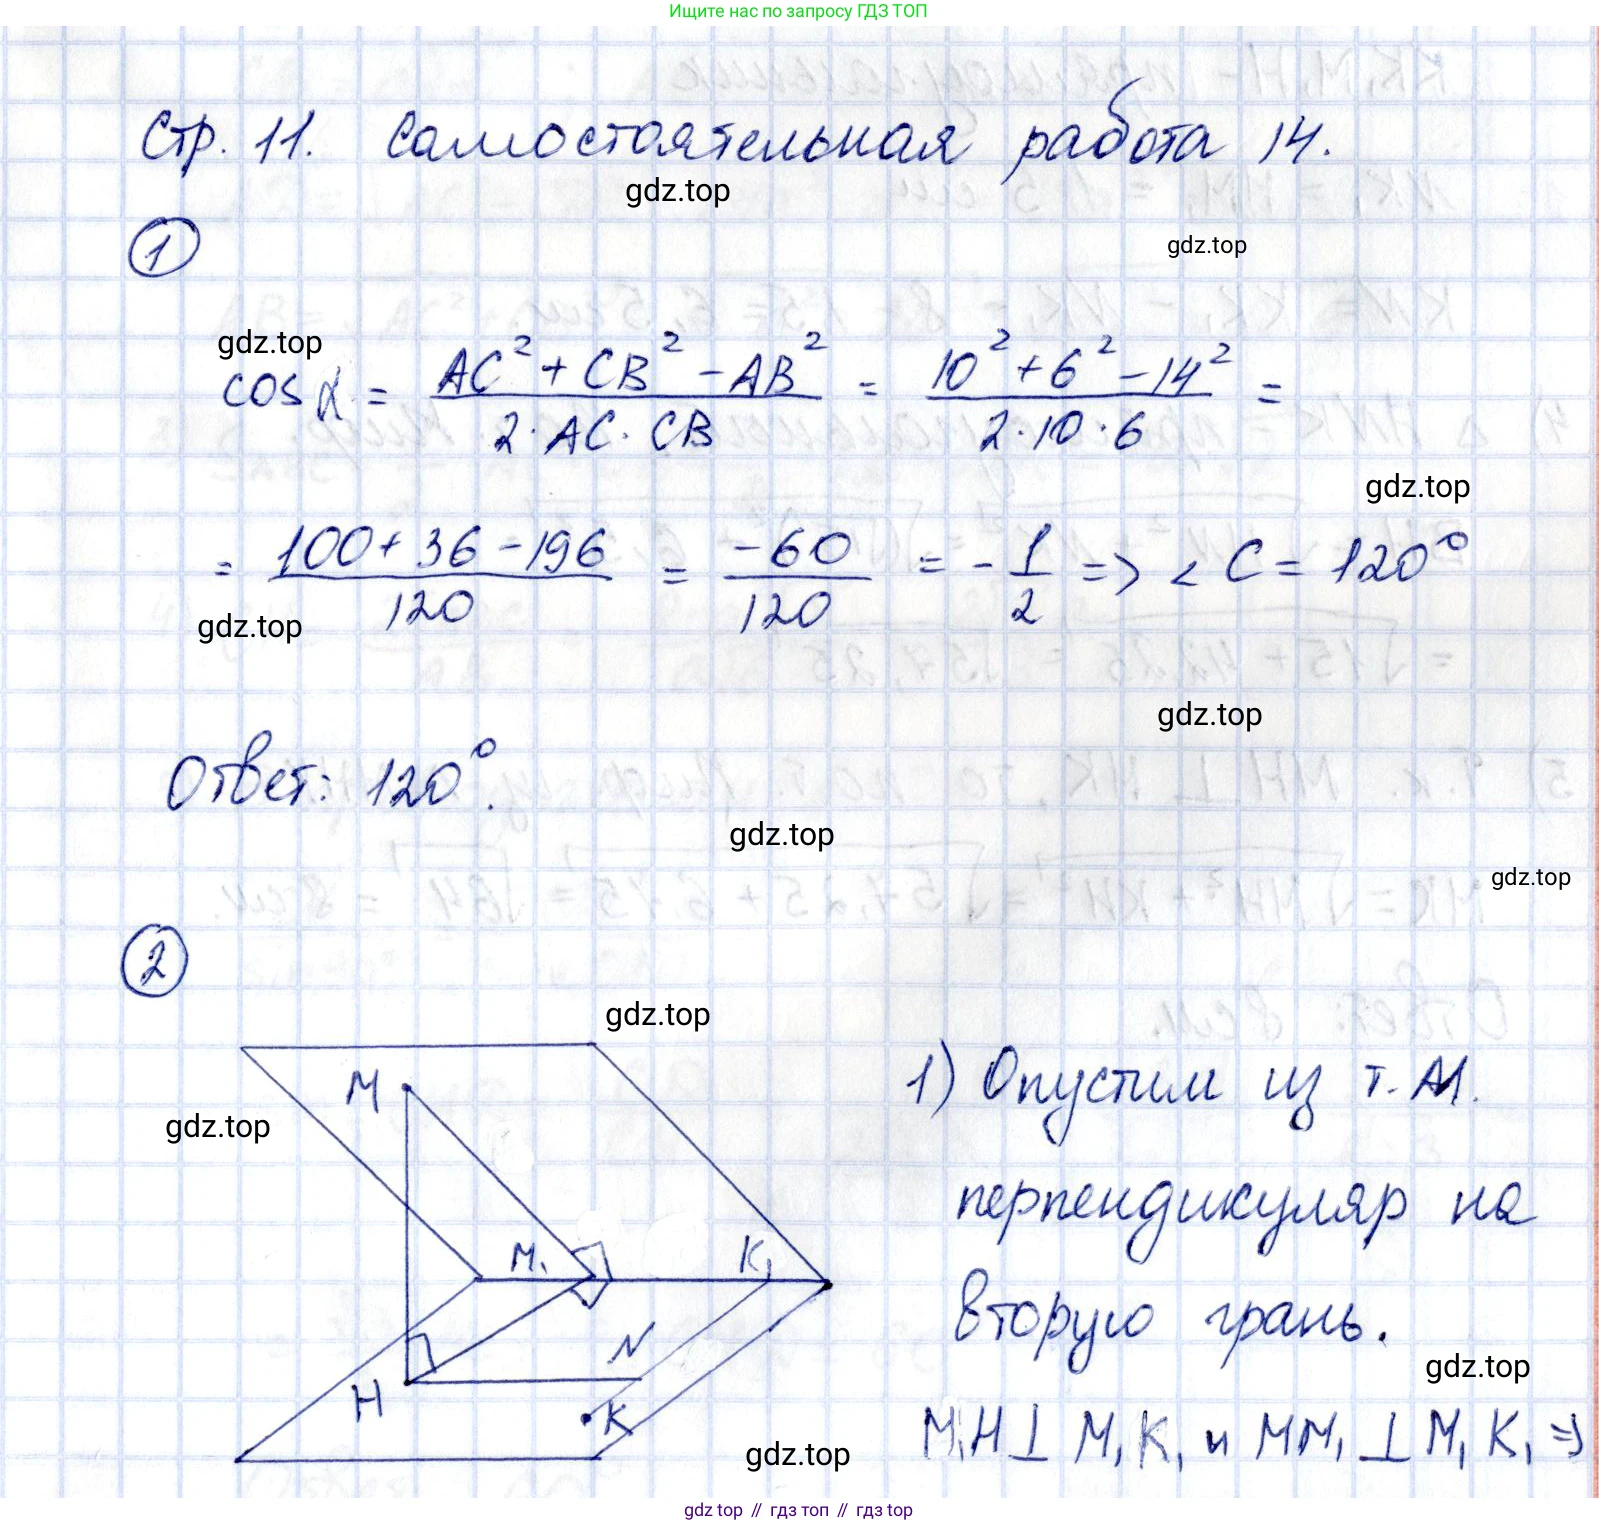 Ищите нас по запросу ГДЗ ТОП
Стр. 11. Самостоятельная работа 14.
gdz.top
1
gdz.top
gdz.top
cos α = (AC² + CB² - AB²) / (2 · AC · CB) = (10² + 6² - 14²) / (2 · 10 · 6) =
gdz.top
= (100 + 36 - 196) / 120 = -60 / 120 = - 1/2 => < C = 120°
gdz.top
gdz.top
Ответ: 120°.
gdz.top
gdz.top
2
gdz.top
M
1) Опустим из т. M.
gdz.top
перпендикуляр на
M₁ K₁
вторую грань.
N
gdz.top
H K
M₁H ⊥ M₁K₁ и MM₁ ⊥ M₁K₁ =>
gdz.top
gdz.top // гдз топ // гдз.top